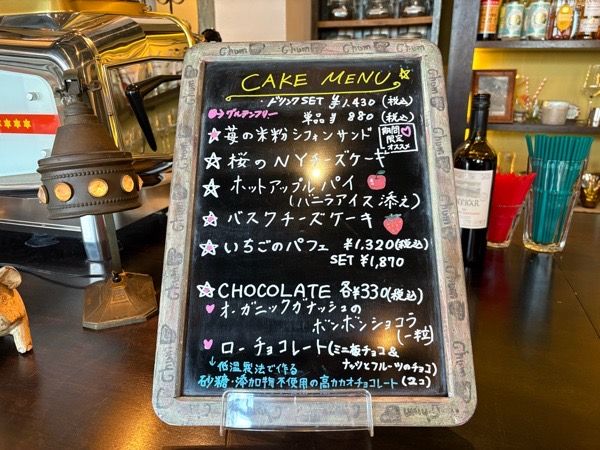 CAKE MENU
・ドリンクSET ¥1,430 (税込)
→グルテンフリー 単品 ¥ 880 (税込)
☆ 苺の米粉シフォンサンド 期間限定オススメ
☆ 桜のNYチーズケーキ
☆ ホットアップルパイ
(バニラアイス添え)
☆ バスクチーズケーキ
☆ いちごのパフェ ¥1,320(税込)
SET ¥1,870
☆ CHOCOLATE 各¥330(税込)
♥ オーガニックガナッシュの
ボンボンショコラ
(一粒)
♥ ローチョコレート(ミニ板チョコ&
ナッツとフルーツのチョコ)
↓低温製法で作る
砂糖・添加物不使用の高カカオチョコレート (2コ)
Chum